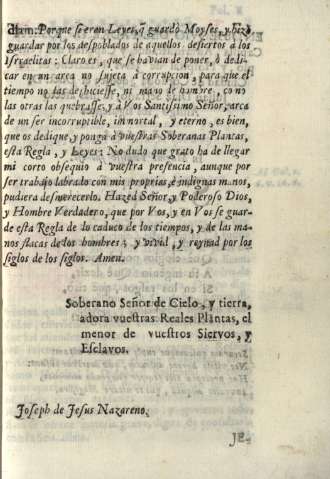 diam. Porque si eran Leyes, q̃ guardò Moyses, y hizò
guardar por los despoblados de aquellos desiertos à los
Israelitas: Claro es, que se havian de poner, ò dedi-
car en un arca no sujeta à corrupcion, para que el
tiempo no las deshiciesse, ni mano de hombre, como
las otras las quebrasse, y à Vos Santissimo Señor, arca
de un ser incorruptible, immortal, y eterno, es bien,
que os dedique, y ponga à vuestras Soberanas Plantas,
esta Regla, y Leyes: No dudo que grato ha de llegar
mi corto obsequio à vuestra presencia, aunque por
ser trabajo labrado con mis proprias, è indignas manos,
pudiera desmerecerlo. Hazed Señor, y Poderoso Dios,
y Hombre Verdadero, que por Vos, y en Vos se guar-
de esta Regla de lo caduco de los tiempos, y de las ma-
nos flacas de los hombres; y vivid, y reynad por los
siglos de los siglos. Amen.
Soberano Señor de Cielo, y tierra,
adora vuestras Reales Plantas, el
menor de vuestros Siervos, y
Esclavos.
Joseph de Jesus Nazareno.
JE-